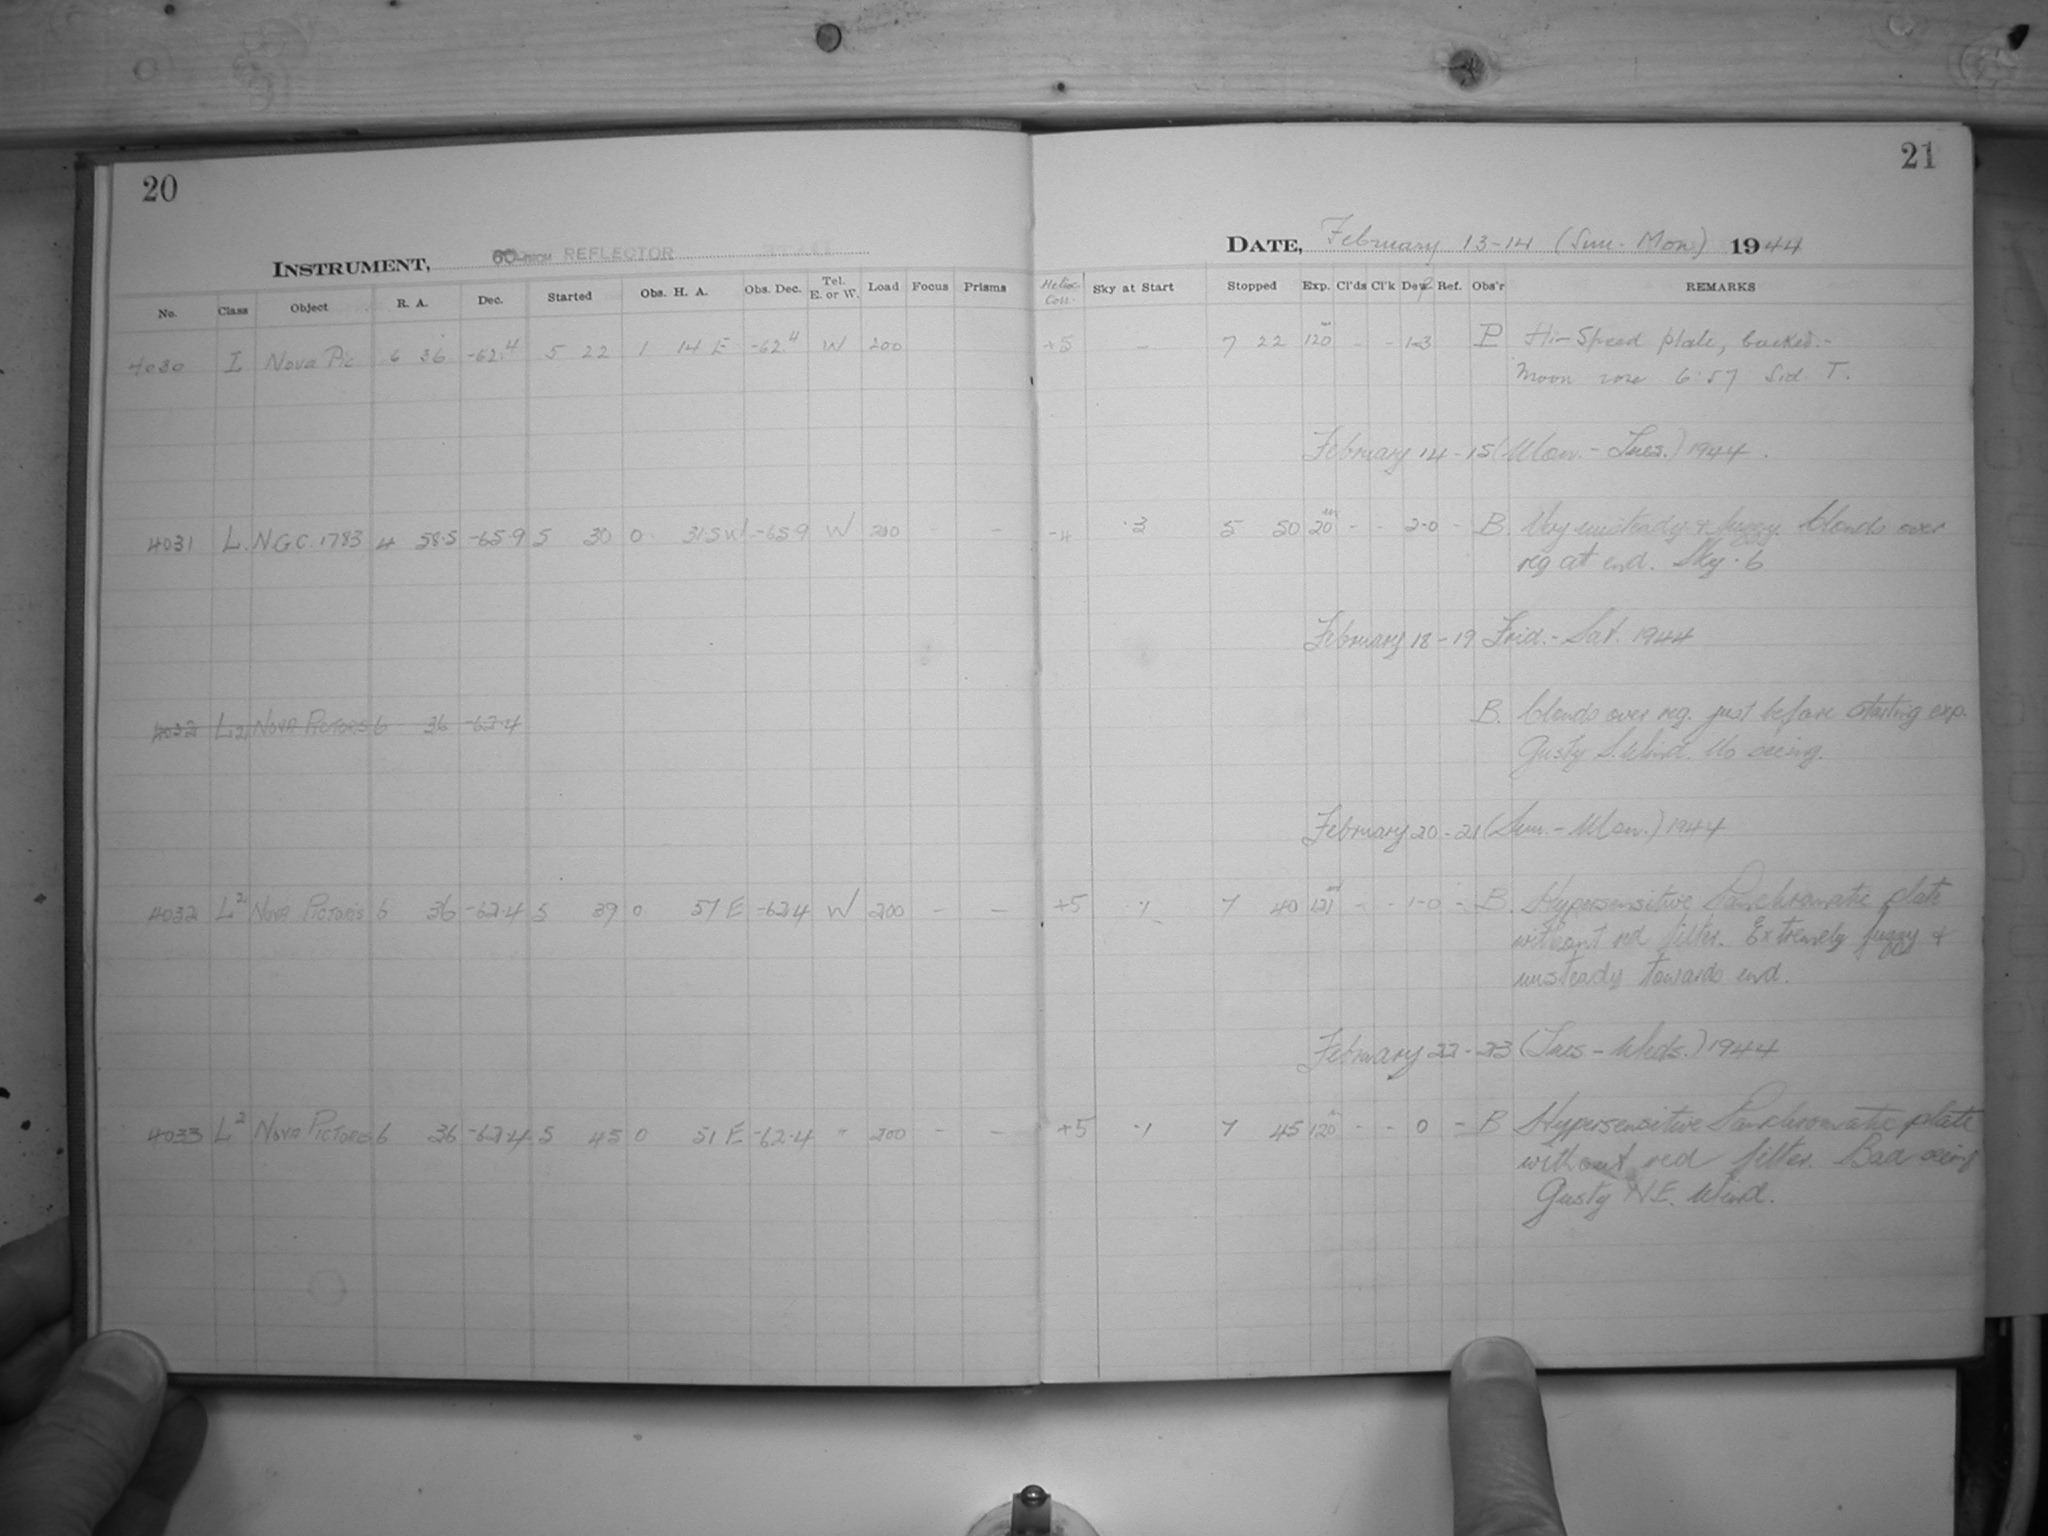 20
21
INSTRUMENT, 60-INCH REFLECTOR
DATE, February 13-14 (Sun. Mon) 1944
No. Class Object R. A. Dec. Started Obs. H. A. Obs. Dec. Tel. E. or W. Load Focus Prisms Helioc. Corr. Sky at Start Stopped Exp. Cl'ds Cl'k Dew Ref. Obs'r REMARKS
4030 I Nova Pic 6 36 -62.4 5 22 1 14 E -62.4 W 200 +5 - 7 22 120m - - 1-3 P Hi-Speed plate, backed.-
Moon rose 6:57 Sid. T.
February 14-15 (Mon.-Tues.) 1944.
4031 L. N.G.C. 1783 4 58.5 -65.9 5 30 0 31.5W -65.9 W 200 - - -4 .3 5 50 20m - - 2-0 - B. Very unsteady & fuzzy. Clouds over
reg at end. Sky .6
February 18-19 Frid.-Sat. 1944
4032 L2 NOVA PICTORIS 6 36 -62.4 B. Clouds over reg. just before starting exp.
Gusty S. Wind. No seeing.
February 20-21 (Sun.-Mon.) 1944
4032 L2 NOVA PICTORIS 6 36 -62.4 5 39 0 57 E -62.4 W 200 - - +5 .1 7 40 121m - - 1-0 - B. Hypersensitive Panchromatic plate
without red filter. Extremely fuzzy &
unsteady towards end.
February 22-23 (Tues-Weds.) 1944
4033 L2 NOVA PICTORIS 6 36 -62.4 5 45 0 51 E -62.4 " 200 - - +5 .1 7 45 120m - - 0 - B Hypersensitive Panchromatic plate
without red filter. Bad seeing
Gusty N.E. Wind.